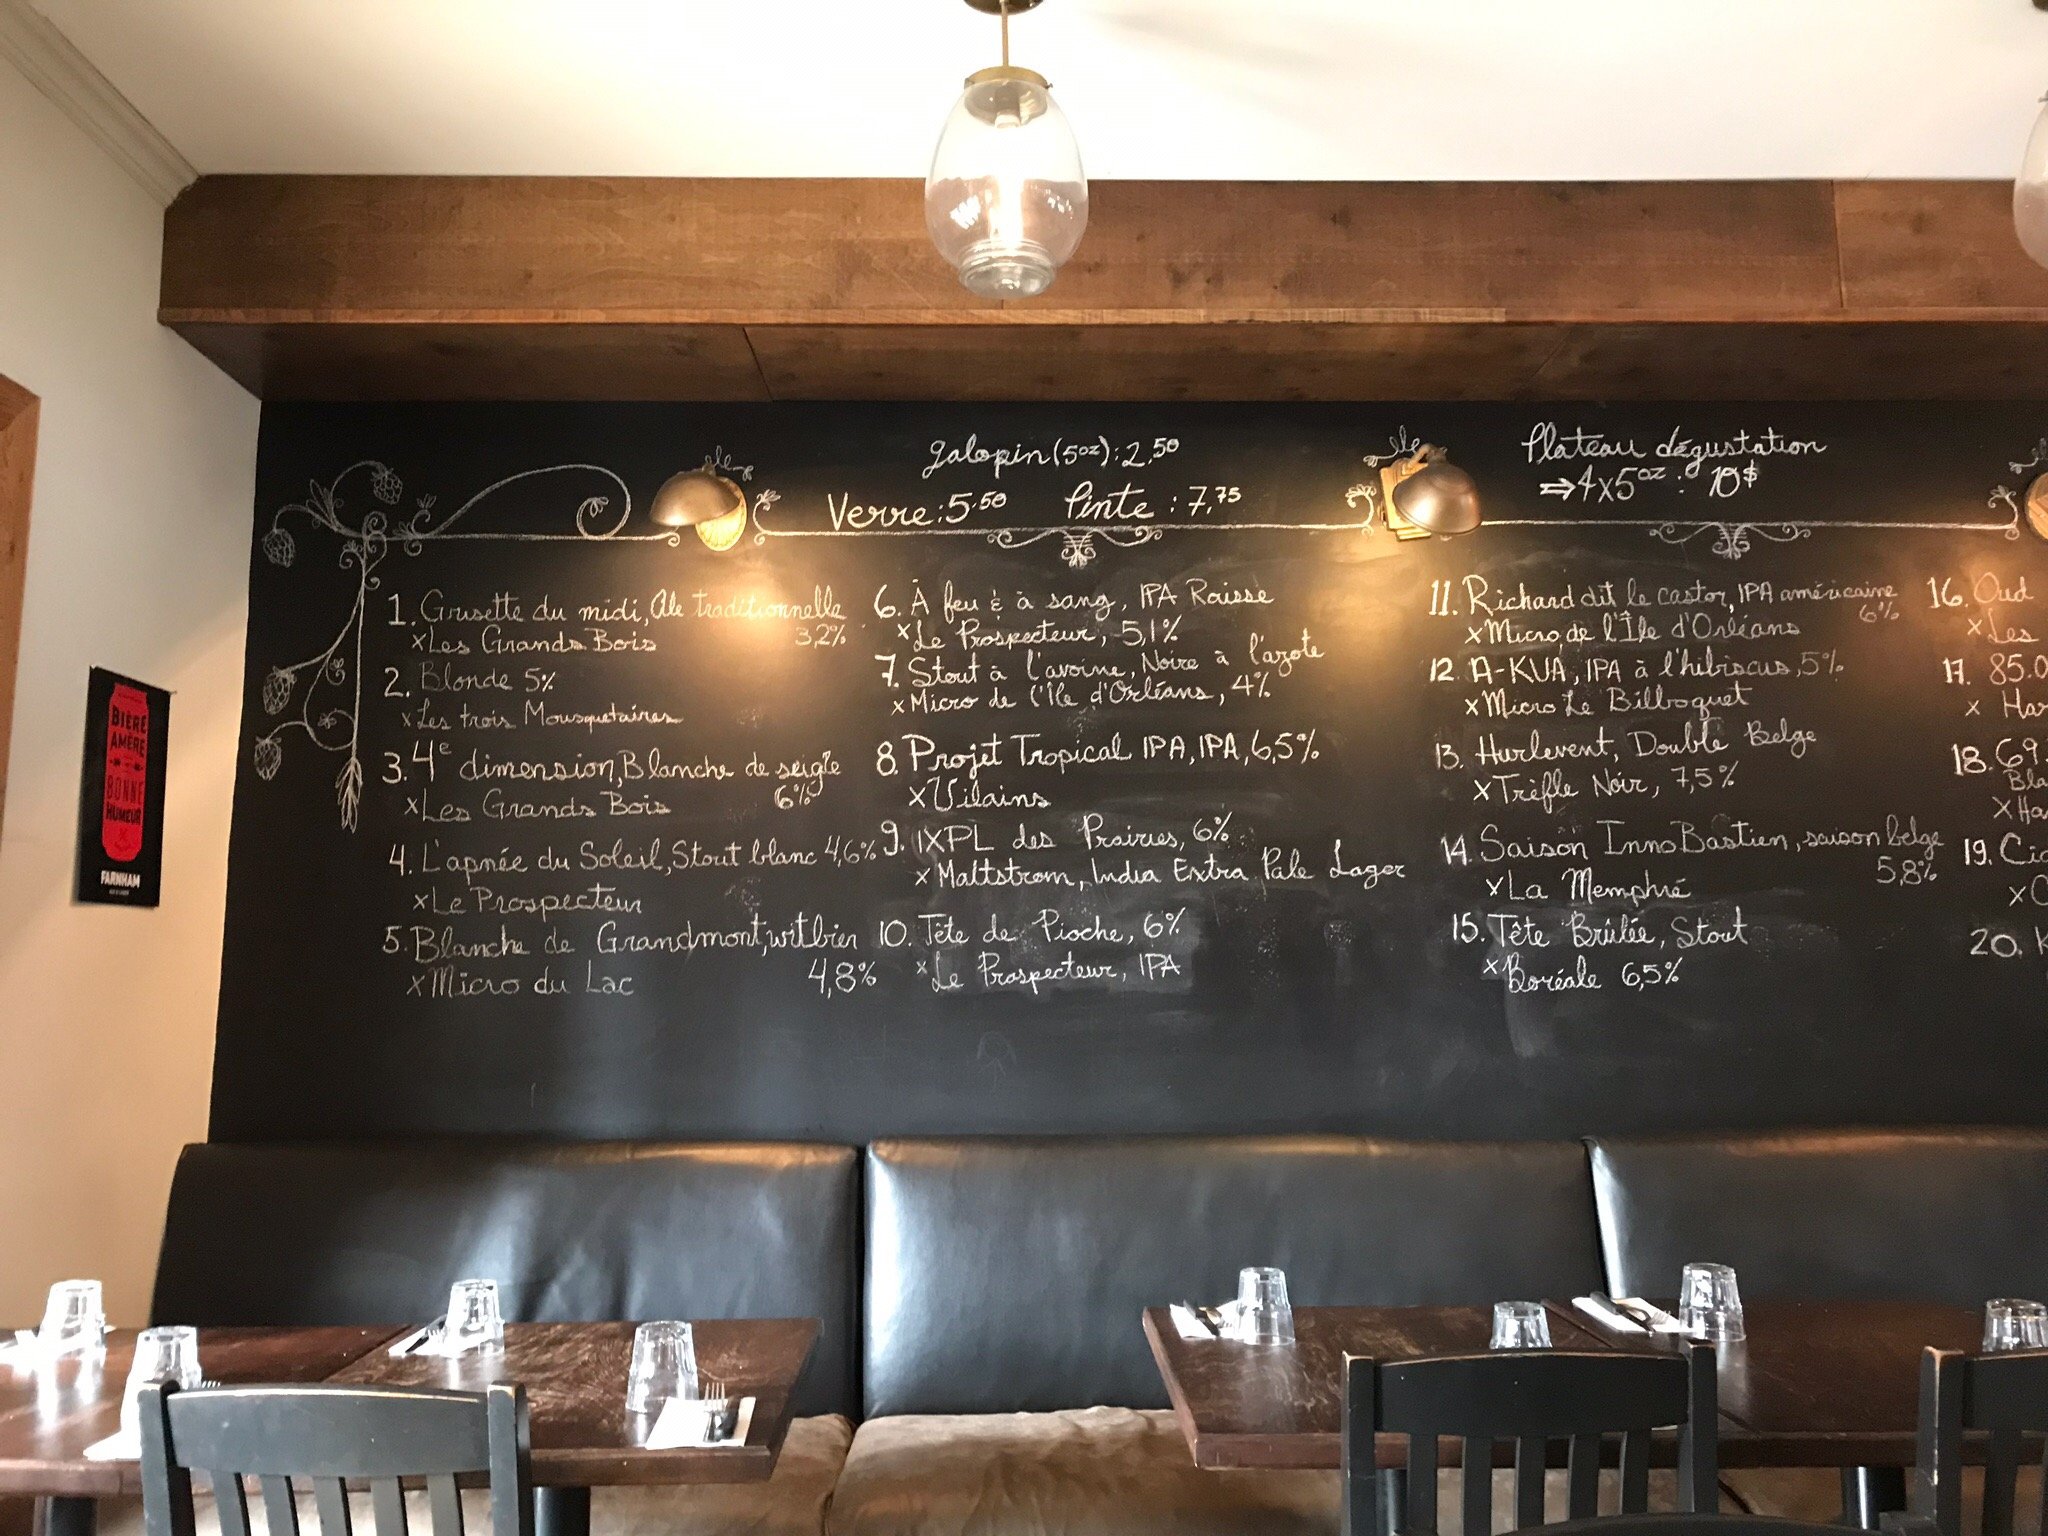 galopin (5oz): 2,50
Verre: 5.50 Pinte : 7,75
Plateau dégustation
⇒ 4x5oz : 10$
1. Grisette du midi, Ale traditionnelle
xLes Grands Bois 3,2%
2. Blonde 5%
xLes trois Mousquetaires
3. 4e dimension, Blanche de seigle
xLes Grands Bois 6%
4. L'apnée du Soleil, Stout blanc 4,6%
xLe Prospecteur
5. Blanche de Grandmont, witbier
xMicro du Lac 4,8%
6. À feu & à sang, IPA Raisse
xLe Prospecteur, 5,1%
7. Stout à l'avoine, Noire à l'azote
xMicro de l'Île d'Orléans, 4%
8. Projet Tropical IPA, IPA, 6,5%
xVilains
9. IXPL des Prairies, 6%
x Maltstrom, India Extra Pale Lager
10. Tête de Pioche, 6%
xLe Prospecteur, IPA
11. Richard dit le castor, IPA américaine
6%
xMicro de l'Île d'Orléans
12. A-KUA, IPA à l'hibiscus, 5%
xMicro Le Bilboquet
13. Hurlevent, Double Belge
xTrèfle Noir, 7,5%
14. Saison InnoBastien, saison belge
5,8%
xLa Memphré
15. Tête Brûlée, Stout
x Boréale 6,5%
16. Oud
xLes
17. 85.0
x Har
18. 69.
Bla
xHa
19. Cid
x
20. K
BIÈRE
AMÈRE
BONNE
HUMEUR
FARNHAM